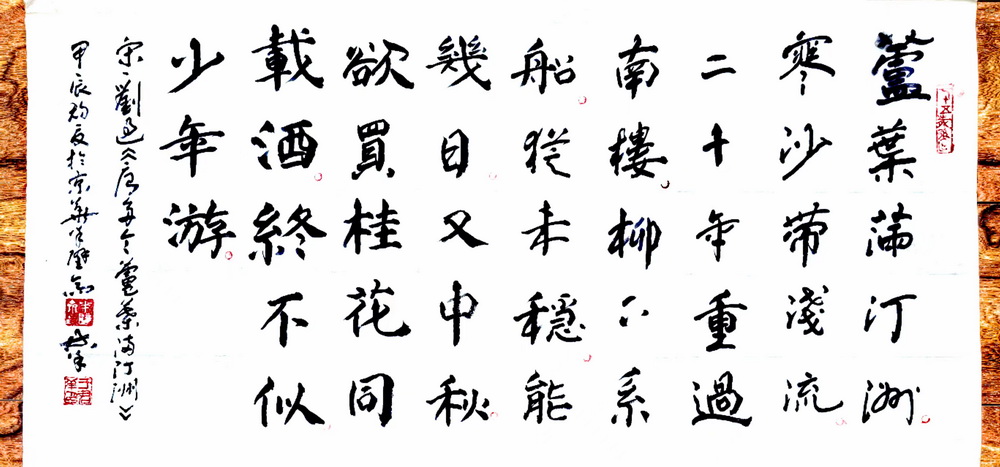 蘆葉滿汀洲
寒沙帶淺流
二十年重過
南樓柳下系
船猶未穩能
幾日又中秋
欲買桂花同
載酒終不似
少年游
宋劉過《唐多令蘆葉滿汀洲》
甲辰初夏於京華